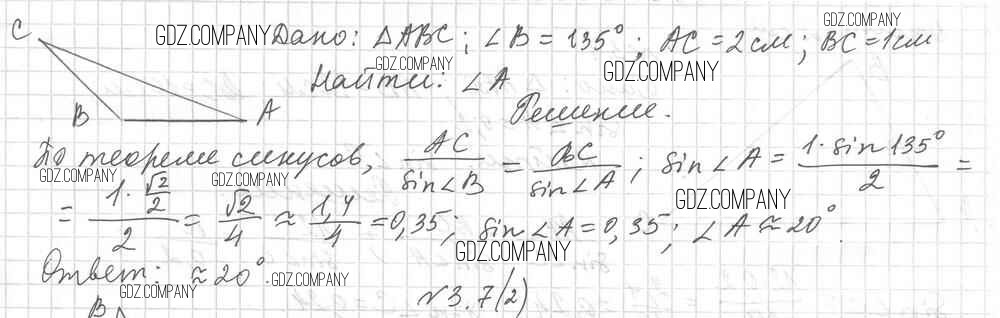 C GDZ.COMPANY Дано: △ABC; ∠B = 135°; AC = 2 см; BC = 1 см GDZ.COMPANY
GDZ.COMPANY Найти: ∠A GDZ.COMPANY
B A Решение.
По теореме синусов, AC/sin∠B = BC/sin∠A; sin∠A = 1·sin135°/2 =
GDZ.COMPANY GDZ.COMPANY GDZ.COMPANY
= 1·√2/2/2 = √2/4 ≈ 1,4/4 = 0,35; sin∠A = 0,35; ∠A ≈ 20°.
GDZ.COMPANY
Ответ: ≈ 20°. GDZ.COMPANY
GDZ.COMPANY №3.7(2)
B